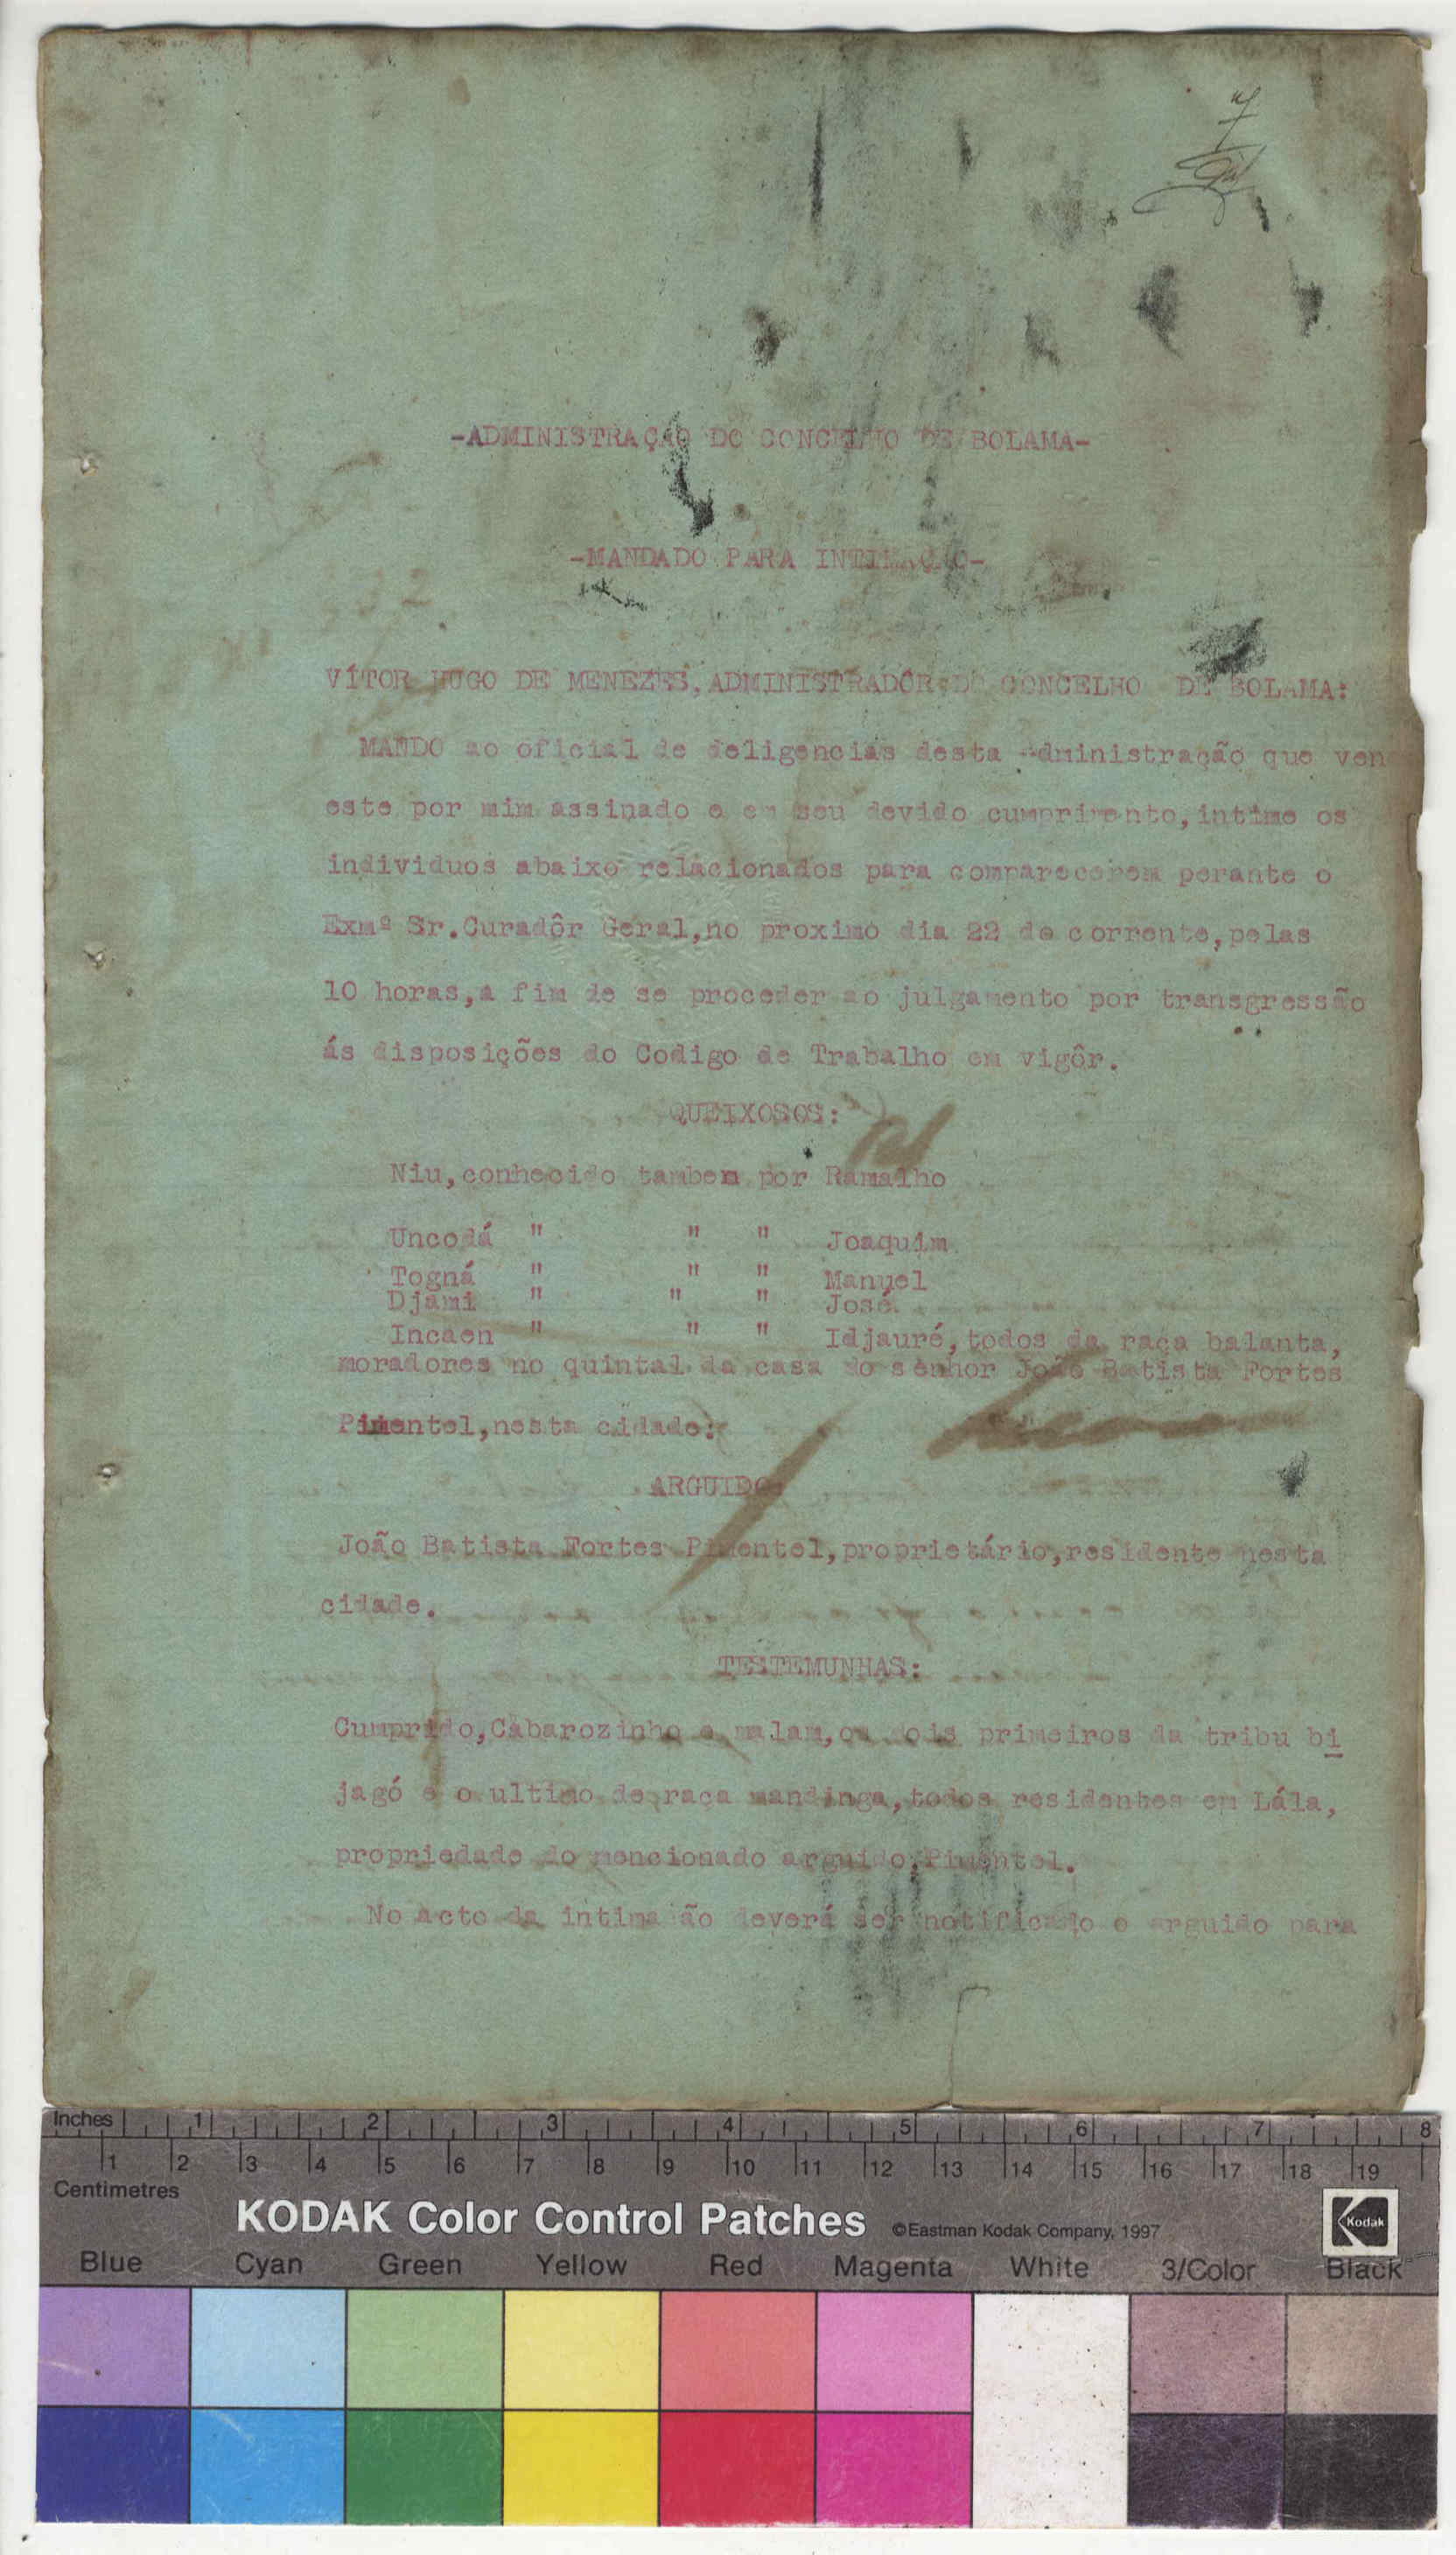 7
-ADMINISTRAÇÃO DO CONCELHO DE BOLAMA-
-MANDADO PARA INTIMAÇÃO-
VÍTOR HUGO DE MENEZES, ADMINISTRADÔR DO CONCELHO DE BOLAMA:
MANDO ao oficial de deligencias desta Administração que ven
este por mim assinado e em seu devido cumprimento, intime os
individuos abaixo relacionados para comparecerem perante o
Exmº Sr. Curadôr Geral, no proximo dia 22 do corrente, pelas
10 horas, a fim de se proceder ao julgamento por transgressão
ás disposições do Codigo de Trabalho em vigôr.
QUEIXOSOS:
Niu, conhecido tambem por Ramalho
Uncodá " " " Joaquim
Togná " " " Manuel
Djami " " " José
Incaen " " " Idjauré, todos da raça balanta,
moradores no quintal da casa do senhor João Batista Fortes
Pimentel, nesta cidade:
ARGUIDO:
João Batista Fortes Pimentel, proprietário, residente nesta
cidade.
TESTEMUNHAS:
Cumprido, Cabarozinho e malam, os dois primeiros da tribu bi
jagó e o ultimo de raça mandinga, todos residentes em Lála,
propriedade do mencionado arguido, Pimentel.
No acto da intima ão deverá ser notificado o arguido para
Inches 1 2 3 4 5 6 7 8
1 2 3 4 5 6 7 8 9 10 11 12 13 14 15 16 17 18 19
Centimetres
KODAK Color Control Patches ©Eastman Kodak Company, 1997 Kodak
Blue Cyan Green Yellow Red Magenta White 3/Color Black